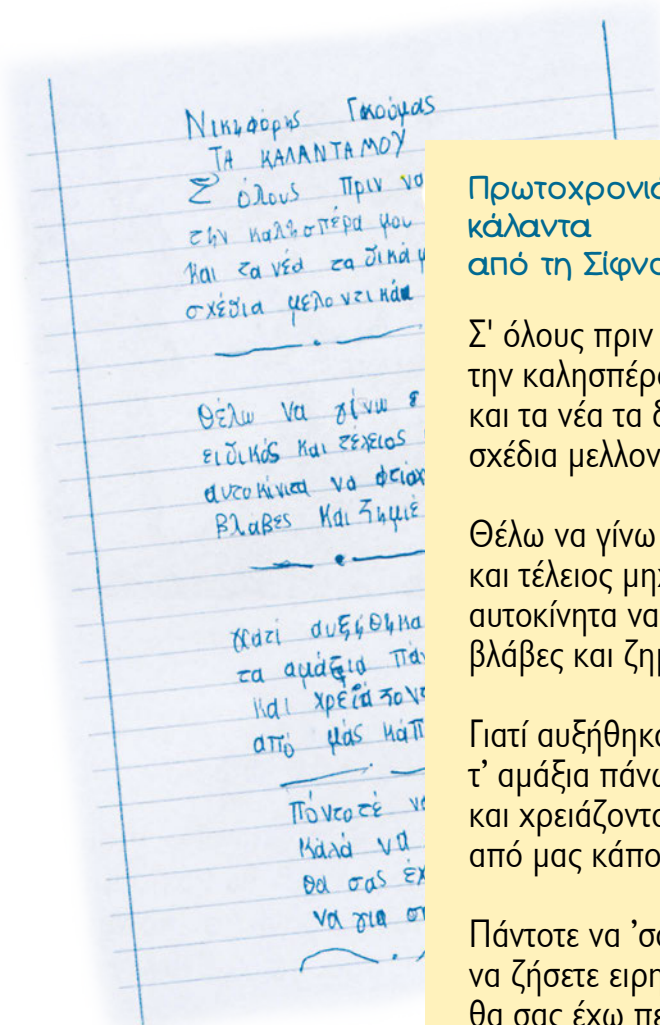 Νικηφόρης Γκούμας
ΤΑ ΚΑΛΑΝΤΑ ΜΟΥ
Σ όλους πριν να
την καλησπέρα μου
και τα νέα τα δικά μ
σχέδια μελοντικάα
Θέλω να γίνω ε
ειδικός και τέλειος
αυτοκίνιτα να φτιαχ
βλαβες και ζημιέ
γιατί αυξήθηκα
τα αμάξια πάν
και χρείάζοντ
από μάς κάπ
Πάντοτέ να
καλά να
θα σας έχ
να για στ
Πρωτοχρονιά
κάλαντα
από τη Σίφνο
Σ' όλους πριν
την καλησπέρα
και τα νέα τα δ
σχέδια μελλον
Θέλω να γίνω
και τέλειος μηχ
αυτοκίνητα να
βλάβες και ζημ
Γιατί αυξήθηκα
τ' αμάξια πάνω
και χρειάζοντα
από μας κάπο
Πάντοτε να 'σα
να ζήσετε ειρη
θα σας έχω πε